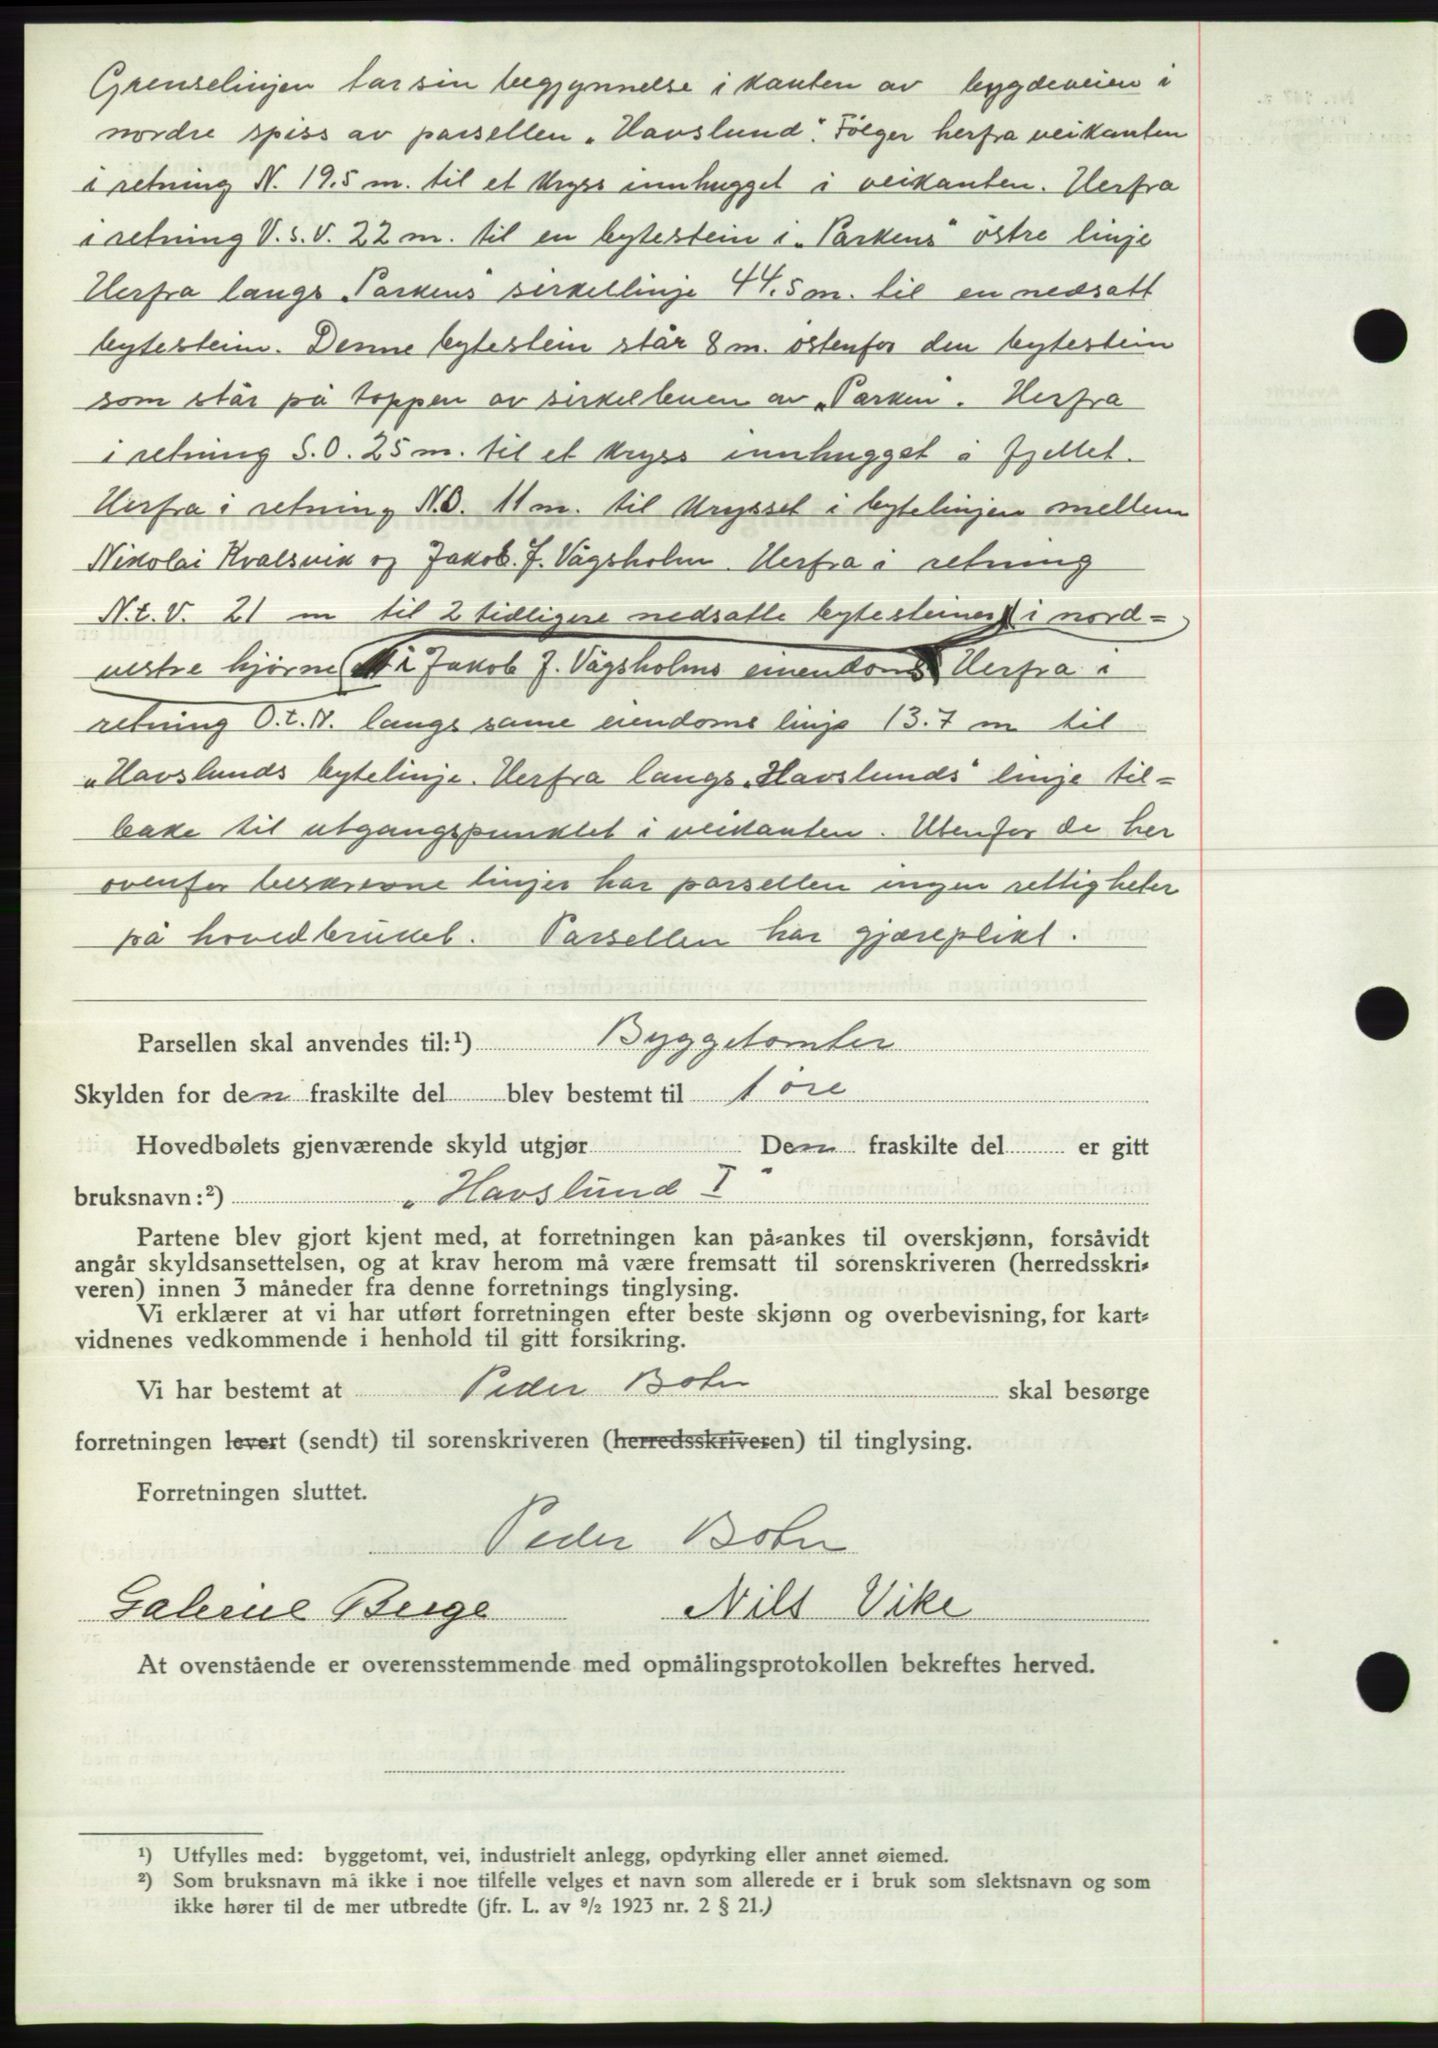 Grenselinjen tar sin begjynnelse i kanten av bygdeveien i
nordre spiss av parsellen „Havslund". Følger herfra veikanten
i retning N. 19.5 m. til et kryss innhugget i veikanten. Herfra
i retning V.s.V. 22 m. til en bytestein i „Parkens" östre linje
Herfra langs „Parkens" sirkellinje 44.5 m. til en nedsatt
bytestein. Denne bytestein står 8 m. östenfor den bytestein
som står på toppen av sirkelbuen av „Parken". Herfra
i retning S.O. 25 m. til et kryss innhugget i fjellet.
Herfra i retning N.O. 11 m. til krysset i bytelinjen mellem
Nikolai Kvalsvik og Jakob. J. Vågsholm. Herfra i retning
N.t.V. 21 m til 2 tidligere nedsatte bytesteiner i nord=
vestre hjørne i Jakob J. Vågsholms eiendom Herfra i
retning O.t.N. langs same eiendoms linje 13.7 m til
„Havslunds bytelinje. Herfra langs „Havslunds" linje til=
bake til utgangspunktet i veikanten. Utenfor de her
ovenfor beskrevne linjer har parsellen ingen rettigheter
på hovedbruket. Parsellen har gjæreplikt.
Parsellen skal anvendes til:¹) Byggetomter
Skylden for den fraskilte del blev bestemt til 1 øre
Hovedbølets gjenværende skyld utgjør Den fraskilte del er gitt
bruksnavn:²) „Havslund I"
Partene blev gjort kjent med, at forretningen kan på=ankes til overskjønn, forsåvidt
angår skyldsansettelsen, og at krav herom må være fremsatt til sorenskriveren (herredsskri=
veren) innen 3 måneder fra denne forretnings tinglysing.
Vi erklærer at vi har utført forretningen efter beste skjønn og overbevisning, for kart=
vidnenes vedkommende i henhold til gitt forsikring.
Vi har bestemt at Peder Bohn skal besørge
forretningen levert (sendt) til sorenskriveren (herredsskriveren) til tinglysing.
Forretningen sluttet.
Peder Bohn
Gabriel Berge Nils Vike
At ovenstående er overensstemmende med opmålingsprotokollen bekreftes herved.
¹) Utfylles med: byggetomt, vei, industrielt anlegg, opdyrking eller annet øiemed.
²) Som bruksnavn må ikke i noe tilfelle velges et navn som allerede er i bruk som slektsnavn og som
ikke hører til de mer utbredte (jfr. L. av 9/2 1923 nr. 2 § 21.)